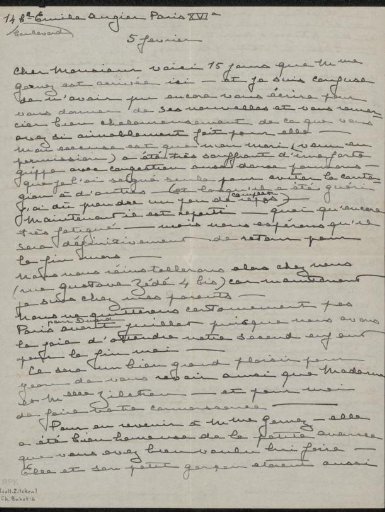 14 Bd Emile Augier Paris XVIe
Boulevard
5 février
Cher Monsieur voici 15 jours que Mme
est arrivée ici — et je suis confuse
de n'avoir pu encore vous écrire pour
vous donner de ses nouvelles et vous remer-
cier bien chaleureusement de ce que vous
avez si aimablement fait pour elle —
Mon excuse est que mon mari (venu en
permission) a été très souffrant d'une forte
grippe avec congestion aux deux poumons —
que j'ai soigné seule pour éviter la conta-
gion à d'autres (et lorsqu'il a été guéri
j'ai dû prendre un peu de repos)
Maintenant il est reparti — quoi qu'encore
très fatigué — mais nous espérons qu'il
sera définitivement de retour pour
la fin mars —
Nous nous réinstallerons alors chez nous
(rue Gustave Zédé 4 bis) car maintenant
je suis chez mes parents —
Nous ne quitterons certainement pas
Paris avant juillet puisque nous avons
la joie d'attendre notre second enfant
pour la fin mai —
Ce sera un bien grand plaisir pour
de vous revoir ainsi que Madame
et Melle Zilcken — et pour moi
de faire votre connaissance —
Pour en revenir à Mme — elle
a été bien heureuse de la petite
que vous avez bien voulu lui faire —
Elle et son petit garçon étaient aussi